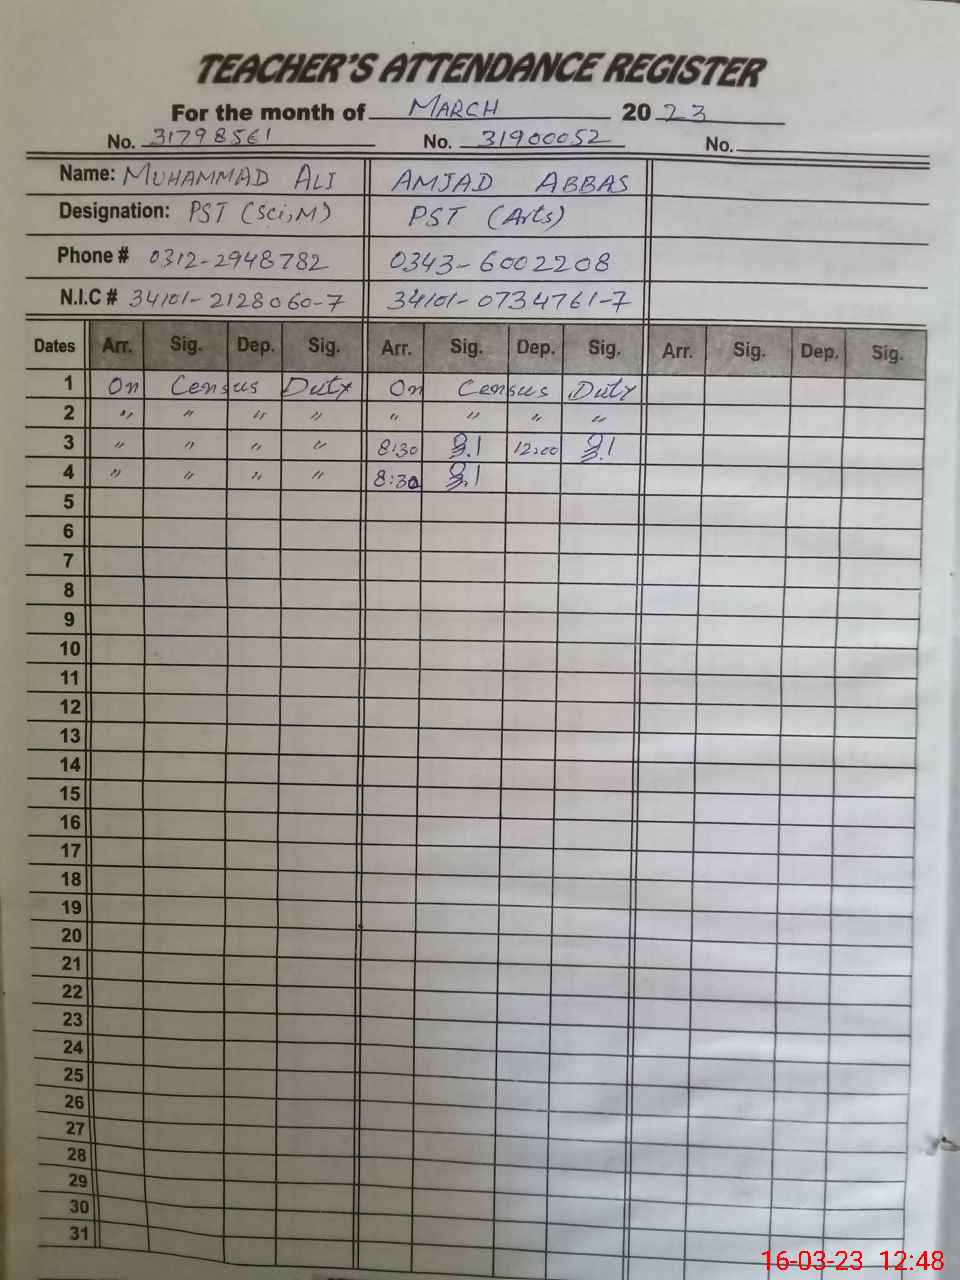 TEACHER'S ATTENDANCE REGISTER
For the month of MARCH 2023
No. 31798561 No. 31900052 No.
Name: MUHAMMAD ALI AMJAD ABBAS
Designation: PST (Sci,M) PST (Arts)
Phone # 0312-2948782 0343-6002208
N.I.C # 34101-2128060-7 34101-0734761-7
Dates Arr. Sig. Dep. Sig. Arr. Sig. Dep. Sig. Arr. Sig. Dep. Sig.
1 On Census Duty On Census Duty
2 " " " " " " " "
3 " " " " 8:30 12:00
4 " " " " 8:30
5
6
7
8
9
10
11
12
13
14
15
16
17
18
19
20
21
22
23
24
25
26
27
28
29
30
31
16-03-23 12:48